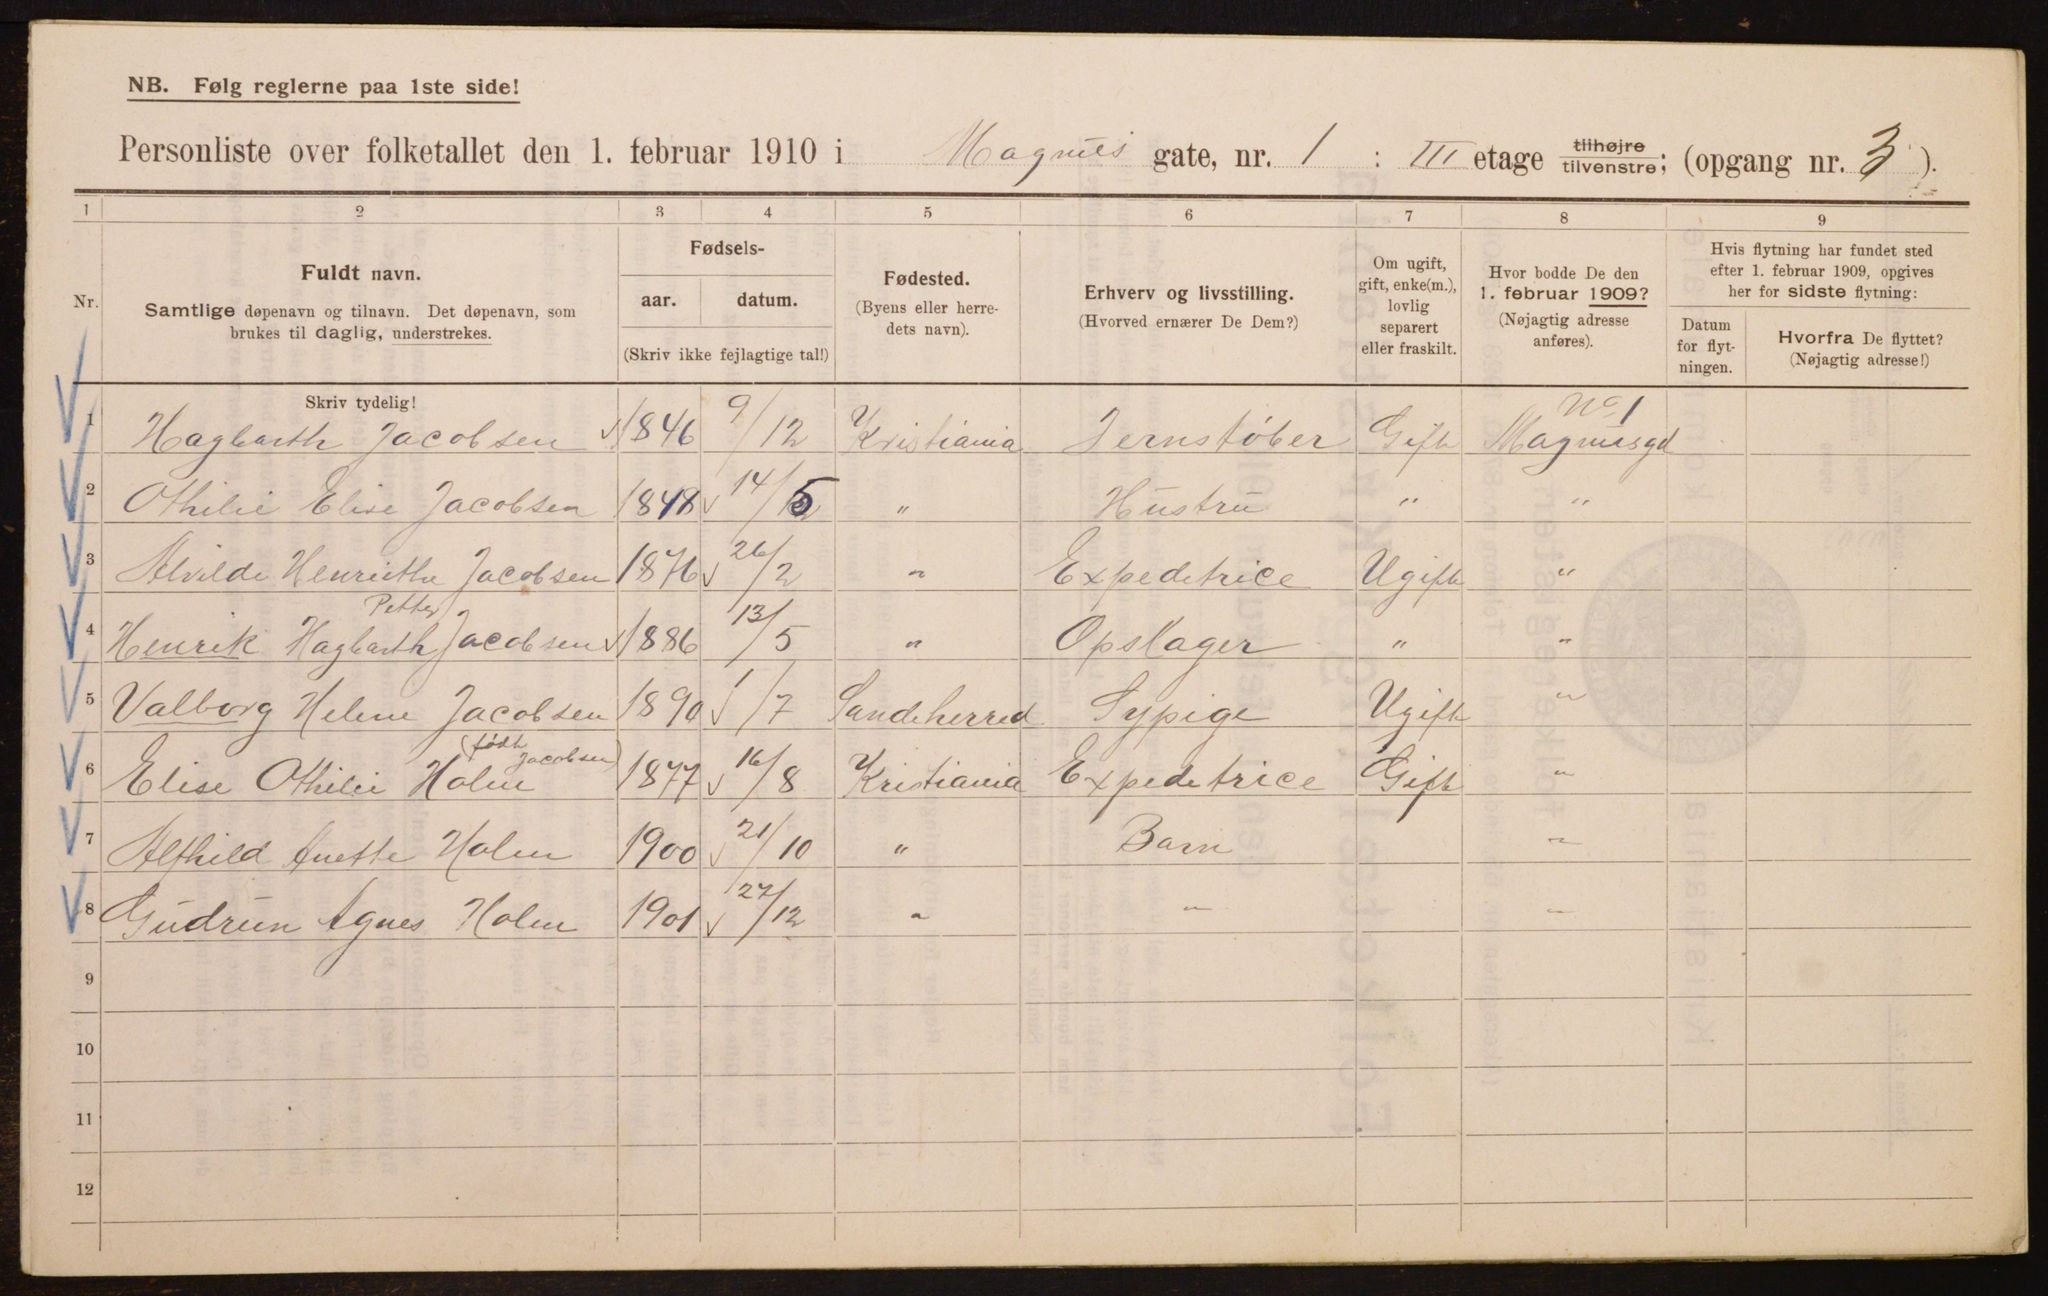 NB. Følg reglerne paa 1ste side!
Personliste over folketallet den 1. februar 1910 i Magnus gate, nr. 1 : III etage tilhøjre/tilvenstre; (opgang nr. 3).
1 2 3 4 5 6 7 8 9
Nr.
Fuldt navn.
Samtlige døpenavn og tilnavn. Det døpenavn, som
brukes til daglig, understrekes.
Fødsels-
aar. datum.
(Skriv ikke fejlagtige tal!)
Fødested.
(Byens eller herre-
dets navn).
Erhverv og livsstilling.
(Hvorved ernærer De Dem?)
Om ugift,
gift, enke(m.),
lovlig
separert
eller fraskilt.
Hvor bodde De den
1. februar 1909?
(Nøjagtig adresse
anføres).
Hvis flytning har fundet sted
efter 1. februar 1909, opgives
her for sidste flytning:
Datum
for flyt-
ningen.
Hvorfra De flyttet?
(Nøjagtig adresse!)
Skriv tydelig!
1 Hagbarth Jacobsen 1846 9/12 Kristiania Jernstøber Gift No 1 Magnusgd
2 Othilie Elise Jacobsen 1848 14/5 " Hustru " "
3 Alvilde Henriette Jacobsen 1876 26/2 " Expeditrice Ugift "
4 Henrik Hagbarth Petter Jacobsen 1886 13/5 " Opslager " "
5 Valborg Helene Jacobsen 1890 1/7 Sandeherred Sypige Ugift "
6 Elise Othilie Holm (født Jacobsen) 1877 16/8 Kristiania Expeditrice Gift "
7 Alfhild Anette Holm 1900 21/10 " Barn "
8 Gudrun Agnes Holm 1901 27/12 " " "
9
10
11
12